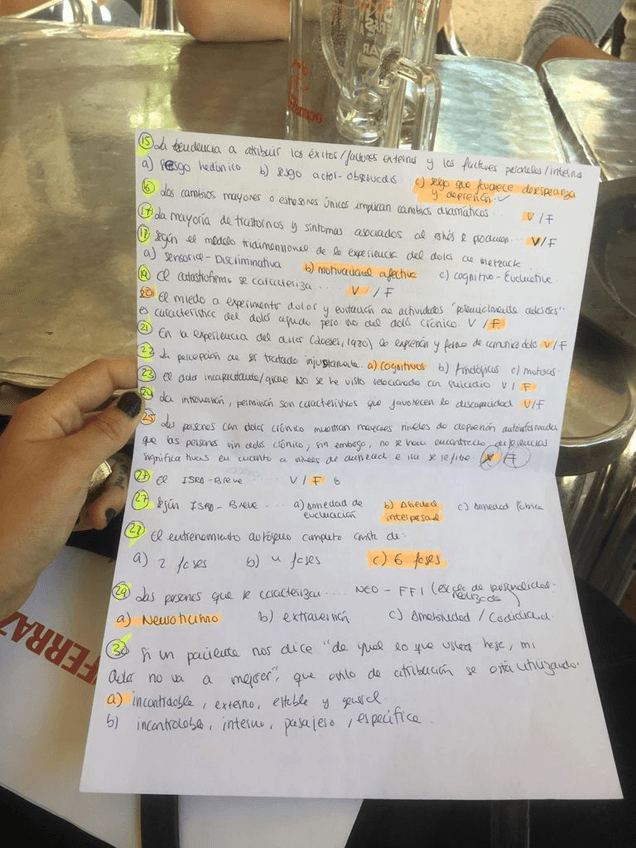 15 La tendencia a atribuir los éxitos/factores externos y los factores personales/internos
a) sesgo hedónico b) sesgo actor-observador c) sesgo que favorece desesperanza
y depresión.
16 Los cambios mayores o estresores únicos implican cambios dramáticos V / F
17 La mayoría de trastornos y síntomas asociados al estrés se producen V/F
18 Según el modelo tridimensional de la experiencia del dolor de Melzack
a) sensorial - Discriminativa b) motivacional afectiva c) cognitivo - Evaluativa
19 El catastrofismo se caracteriza .... V / F
20 El miedo a experimentar dolor y evitación de actividades "potencialmente dolorosas"
es característico del dolor agudo pero no del dolor crónico V / F
21 En la experiencia del dolor (Loeser, 1980) la expresión y forma de comunicarlo V/F
22 La percepción de ser tratado injustamente a) cognitivos b) c)
23 El dolor incapacitante/grave NO se ha visto relacionado con suicidio V / F
24 La son característicos que favorecen la discapacidad V/F
25 Las personas con dolor crónico muestran mayores niveles de depresión autoinformada
que las personas sin dolor crónico, sin embargo, no se han encontrado diferencias
significativas en cuanto a niveles de ansiedad e ira se refiere V F
El ISRA - Breve V / F
27 Según ISRA - BREVE .... a) ansiedad de b) Ansiedad c) Ansiedad fóbica
evaluación interpersonal
El entrenamiento autógeno completo consta de:
a) 2 fases b) 4 fases c) 6 fases
29 Las personas que se caracterizan... NEO - FFI (escala de personalidad
a) Neuroticismo b) extraversión c) Amabilidad / Cordialidad
Si un paciente nos dice "da igual lo que usted hace, mi
dolor no va a mejorar", que estilo de atribución se está utilizando:
a) incontrolable, externo, estable y general.
b) incontrolable, interno, pasajero, específica.
FERRAZ